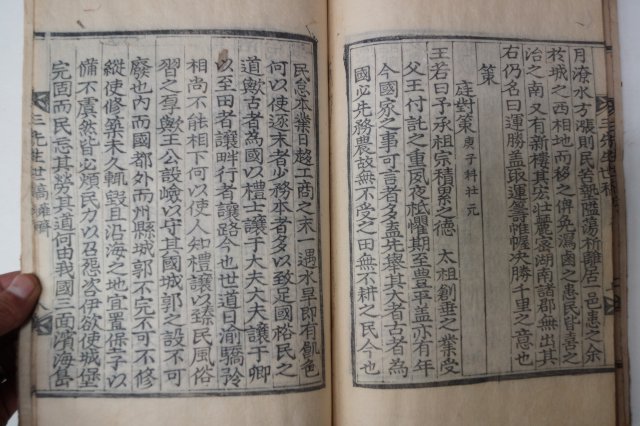 月潦水方漲則民苦墊隘蕩析離居一邑患之余
於城之西相地而移之俾免瀉鹵之患民皆喜之
治之南又有新樓其宏壯麗寔湖南諸郡無出其
右仍名曰運勝盖取運籌帷幄決勝千里之意也
策
庭對策 庚子科壯元
王若曰予承祖宗積累之德 太祖創垂之業受
父王付託之重夙夜祗懼期至豊平盖亦有年
今國家之事可言者多盍先擧其大者古者為
國必先務農故無不受之田無不耕之民今也
民怠本業日趨工商之末一遇水旱即有飢色
何以使逐末者少務本者多以致足國裕民之
道歟古者為國以禮士讓于大夫大夫讓于卿
以至田者讓畔行者讓路今也世道日渝驕矜
相尚不能相下何以使人知禮讓以臻民風俗
習之厚歟王公設險以守其國城郭之設不可
廢也內而國都外而州縣城郭不完不可不修
縱使修築未久輒毀且沿海之地宜置保子以
備不虞然皆必煩民力以及愁咨伊欲使城堡
完固而民忘其勞其道何由我國三面濱海島
三先生世稿 八